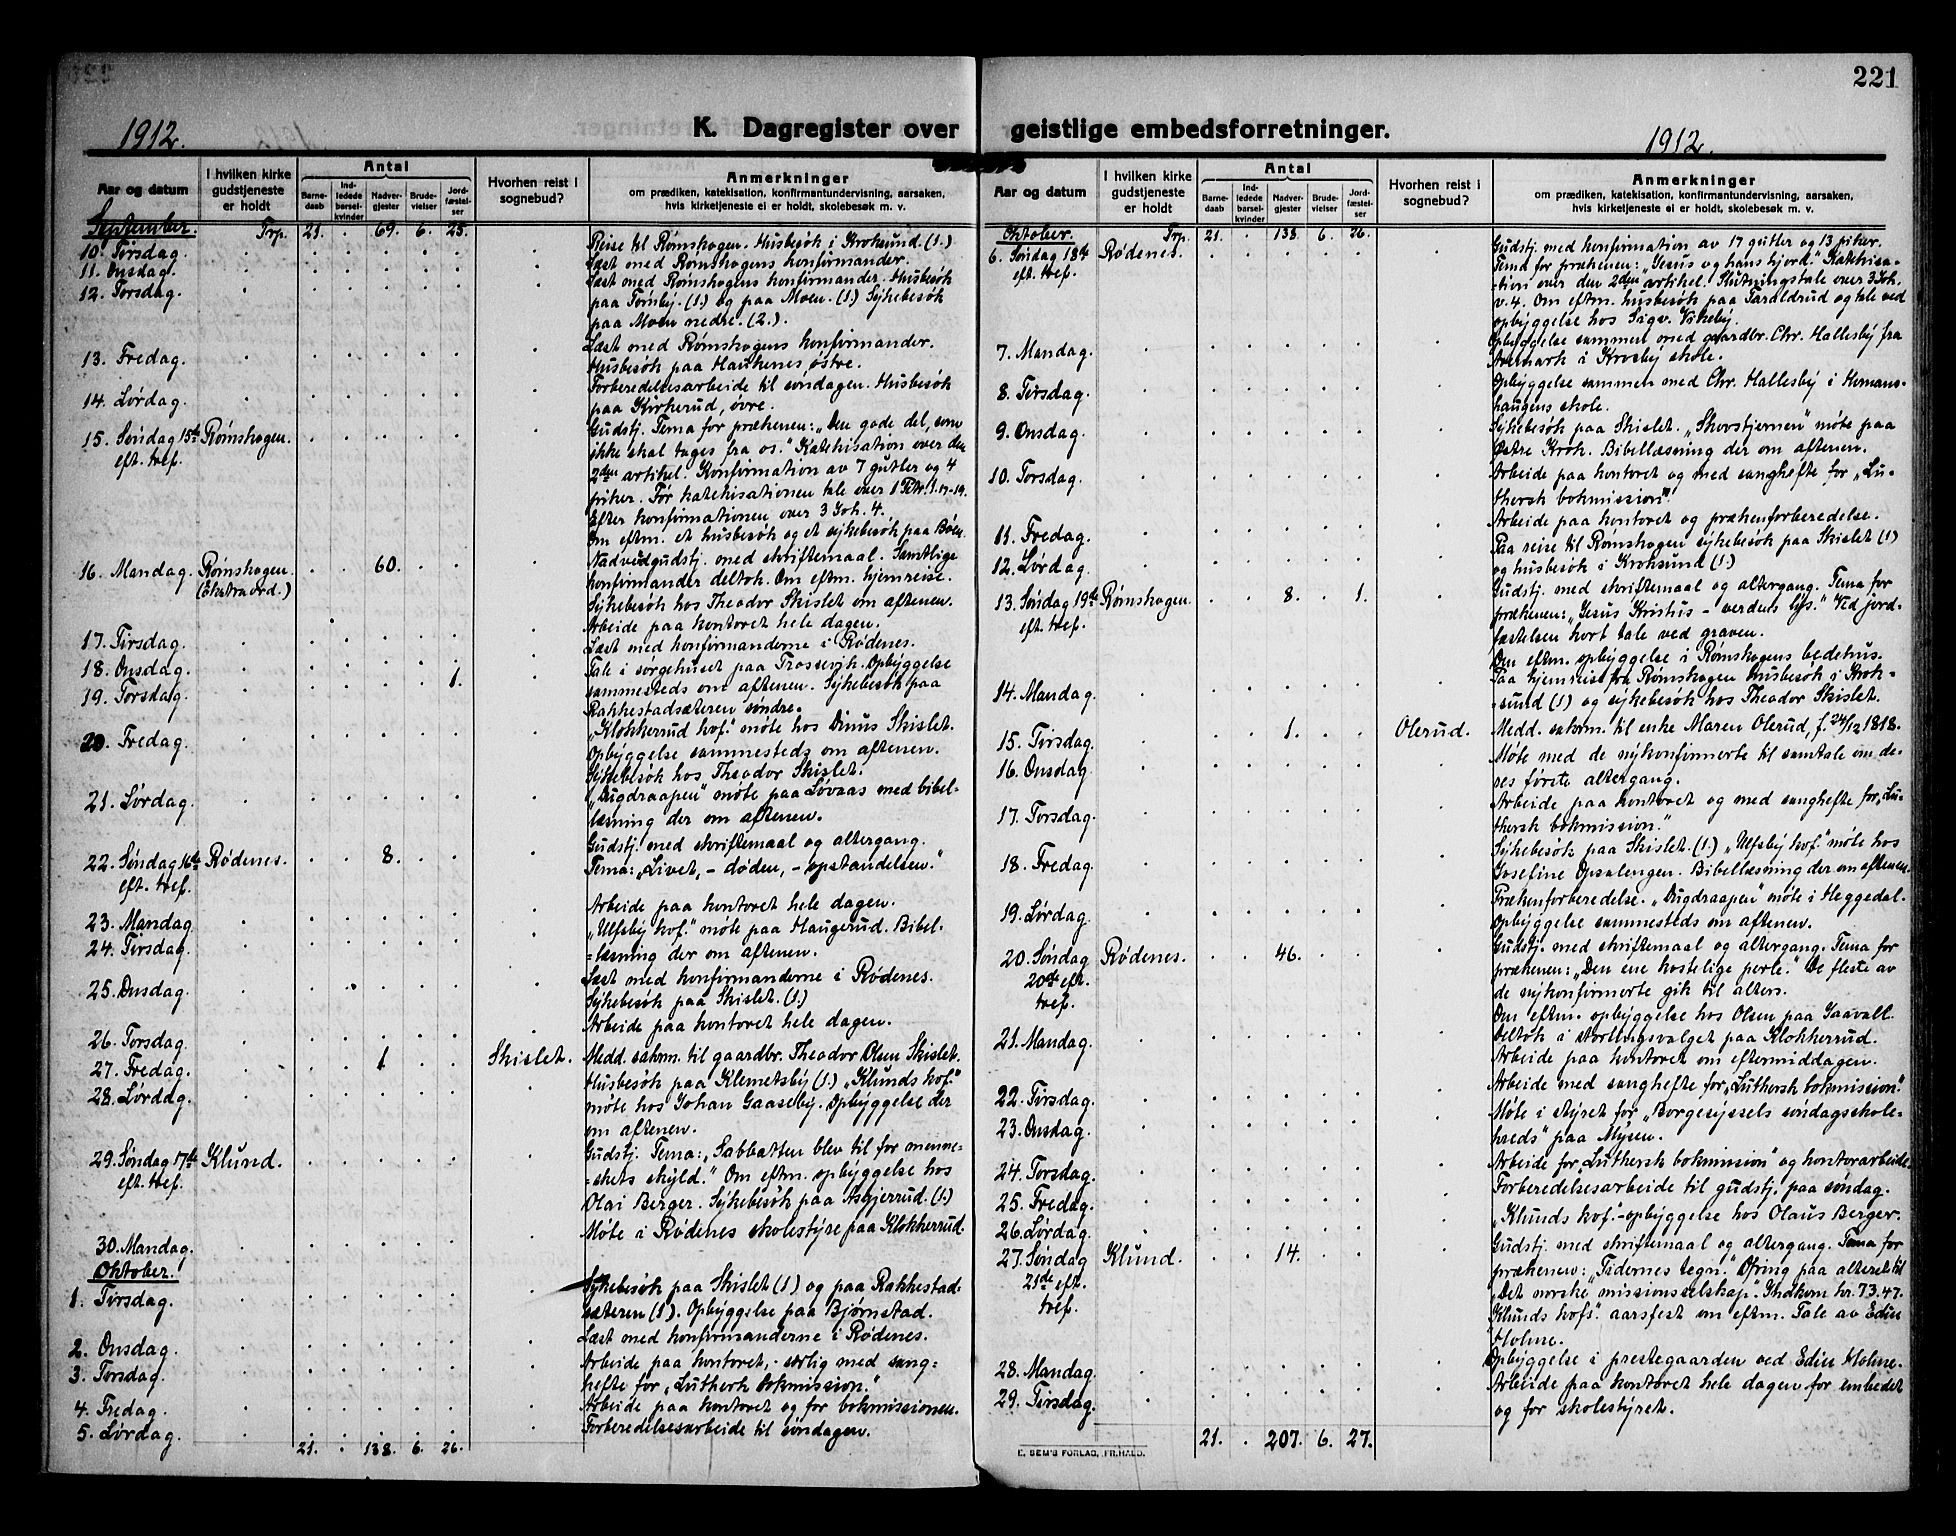 221
1912.
K. Dagregister over
Aar og datum
I hvilken kirke gudstjeneste er holdt
Antal
Barnedaab
Indledede barselkvinder
Nadvergjester
Brudevielser
Jordfæstelser
Hvorhen reist i sognebud?
Anmerkninger
om prædiken, katekisation, konfirmantundervisning, aarsaken,
hvis kirketjeneste ei er holdt, skolebesøk m. v.
September. Trp. 21. 69. 6. 25.
10. Tirsdag. Reise til Rømskogen. Husbesök i Kroksund. (1.)
11. Onsdag. Læst med Rømskogens konfirmander.
12. Torsdag. Læst med Rømskogens konfirmander. Husbesök
paa Tørnby. (1.) og paa Moen. (1.) Sykebesök
paa Moen nedre. (2.).
13. Fredag. Læst med Rømskogens konfirmander.
Husbesök paa Haukenes, østre.
14. Lørdag. Forberedelsesarbeide til søndagen. Husbesök
paa Kirkerud, øvre.
15. Søndag 15de eft. tref. Rømskogen. Gudstj. Tema for prækenen: „Den gode del, som
ikke skal tages fra os.” Katekisation over den
2den artikel. Konfirmation av 7 gutter og 4
piker. Før katekisationen tale over 1 Petr. 1. 17-19.
Efter konfirmationen over 3 Joh. 4.
Om eftm. et husbesök og et sykebesök paa Bøen.
16. Mandag. Rømskogen. (Ekstraord.) 60. Nadverdgudstj. med skriftemaal. Samtlige
konfirmander deltok. Om eftm. hjemreise.
Sykebesök hos Theodor Skislet om aftenen.
17. Tirsdag. Arbeide paa kontoret hele dagen.
18. Onsdag. Læst med konfirmanderne i Rødenes.
19. Torsdag. 1. Tale i sørgehuset paa Trosservik. Opbyggelse
sammesteds om aftenen. Sykebesök paa
Rakkestadsæteren søndre.
20. Fredag. „Klokkerrud kof.” møte hos Dinus Skislet.
Opbyggelse sammesteds om aftenen.
Sykebesök hos Theodor Skislet.
21. Lørdag. „Dugdraapen” møte paa Løvaas med bibel-
læsning der om aftenen.
22. Søndag 16de eft. tref. Rødenes. 8. Gudstj. med skriftemaal og altergang.
Tema: „Livet, – døden, – opstandelsen.”
23. Mandag Arbeide paa kontoret hele dagen.
24. Tirsdag. „Ulfsby kof.” møte paa Haugerud. Bibel-
=læsning der om aftenen.
25. Onsdag. Læst med konfirmanderne i Rødenes.
Sykebesök paa Skislet. (1.)
26. Torsdag. Arbeide paa kontoret hele dagen.
27. Fredag. 1 Skislet. Medd. sakrm. til gaardbr. Theodor Olsen Skislet.
28. Lørdag. Husbesök paa Klemetsby (1.) „Klunds kof.”
møte hos Johan Gaaseby. Opbyggelse der
om aftenen.
29. Søndag 17de eft. tref. Klund. Gudstj. Tema: „Sabbatten blev til for menne-
=skets skyld.” Om eftm. opbyggelse hos
Olai Berger. Sykebesök paa Asgjerrud. (1.)
30. Mandag. Møte i Rødenes skolestyre paa Klokkerrud.
Oktober.
1. Tirsdag. Sykebesök paa Skislet (1) og paa Rakkestad-
sæteren (1). Opbyggelse paa Bjørnstad.
2. Onsdag. Læst med konfirmanderne i Rødenes.
3. Torsdag. Arbeide paa kontoret, - særlig med sang=
hefte for „Luthersk bokmission.”
4. Fredag. Arbeide paa kontoret og for bokmissionen.
5. Lørdag. Forberedelsesarbeide til søndagen.
21. 138. 6. 26.
geistlige embedsforretninger.
1912.
Aar og datum
I hvilken kirke gudstjeneste er holdt
Antal
Barnedaab
Indledede barselkvinder
Nadvergjester
Brudevielser
Jordfæstelser
Hvorhen reist i sognebud?
Anmerkninger
om prædiken, katekisation, konfirmantundervisning, aarsaken,
hvis kirketjeneste ei er holdt, skolebesøk m. v.
Oktober. Trp. 21. 138. 6. 26.
6. Søndag 18de eft. tref. Rødenes. Gudstj. med konfirmation av 17 gutter og 13 piker.
Tema for prækenen: „Jesus og hans hjord.” Katekisa-
-tion over den 2den artikel. Slutningstale over 3 Joh.
v. 4. Om eftm. husbesök paa Taraldrud og tale ved
opbyggelse hos Sigv. Vikeby.
7. Mandag. Opbyggelse sammen med gaardbr. Chr. Hallesby fra
Aremark i Krosby skole.
8. Tirsdag. Opbyggelse sammen med Chr. Hallesby i Hermans-
haugens skole.
9. Onsdag. Sykebesök paa Skislet. „Skovstjernen” møte paa
Østre Krok. Bibellæsning der om aftenen.
10. Torsdag. Arbeide paa kontoret og med sanghefte for „Lu-
thersk bokmission”.
11. Fredag. Arbeide paa kontoret og prækenforberedelse.
12. Lørdag. Paa reise til Rømskogen sykebesök paa Skislet (1)
og husbesök i Kroksund (1.)
13. Søndag 19de eft. tref. Rømskogen. 8. 1. Gudstj. med skriftemaal og altergang. Tema for
prækenen: „Jesus Kristus – verdens lys.” Ved jord-
fæstelsen kort tale ved graven.
Om eftm. opbyggelse i Rømskogens bedehus.
14. Mandag. Paa hjemreise fra Rømskogen husbesök i Krok-
-sund (1) og sykebesök hos Theodor Skislet.
15. Tirsdag. 1. Olerud. Medd. sakrm. til enke Maren Olerud, f. 24/12 1818.
16. Onsdag Møte med de nykonfirmerte til samtale om de-
res første altergang.
17. Torsdag. Arbeide paa kontoret og med sanghefte for „Lu-
thersk bokmission.”
18. Fredag. Sykebesök paa Skislet. (1.) „Ulfsby kof.” møte hos
Josefine Opsalengen. Bibellæsning der om aftenen.
19. Lørdag. Prækenforberedelse. „Dugdraapen” møte i Heggedal.
Opbyggelse sammesteds om aftenen.
20. Søndag 20de eft. tref. Rødenes. 46. Gudstj. med skriftemaal og altergang. Tema for
prækenen: „Den ene kostelige perle.” De fleste av
de nykonfirmerte gik til alters.
Om eftm. opbyggelse hos Olsen paa Gaavall.
21. Mandag. Deltok i stortingsvalget paa Klokkerrud.
Arbeide paa kontoret om eftermiddagen.
22. Tirsdag. Arbeide med sanghefte for „Luthersk bokmission.”
23. Onsdag. Møte i styret for „Borgesyssels søndagsskole-
kreds” paa Mysen.
24. Torsdag. Arbeide for „Luthersk bokmission” og kontorarbeide.
25. Fredag. Forberedelsesarbeide til gudstj. paa søndag.
26. Lørdag. „Klunds kof.”-opbyggelse hos Olaus Berger.
27. Søndag 21de eft. tref. Klund. 14. Gudstj. med skriftemaal og altergang. Tema for
prækenen: „Tidernes tegn.” Ofring paa alteret til
„Det norske missionsselskap.” Indkom kr. 73.47.
Klunds kofs. aarsfest om eftm. Tale av Edin
Holme.
28. Mandag. Opbyggelse i prestegaarden ved Edin Holme.
29. Tirsdag. Arbeide paa kontoret hele dagen for embedet
og for skolestyret.
21. 207. 6. 27.
E. SEM'S FORLAG, FR.HALD.